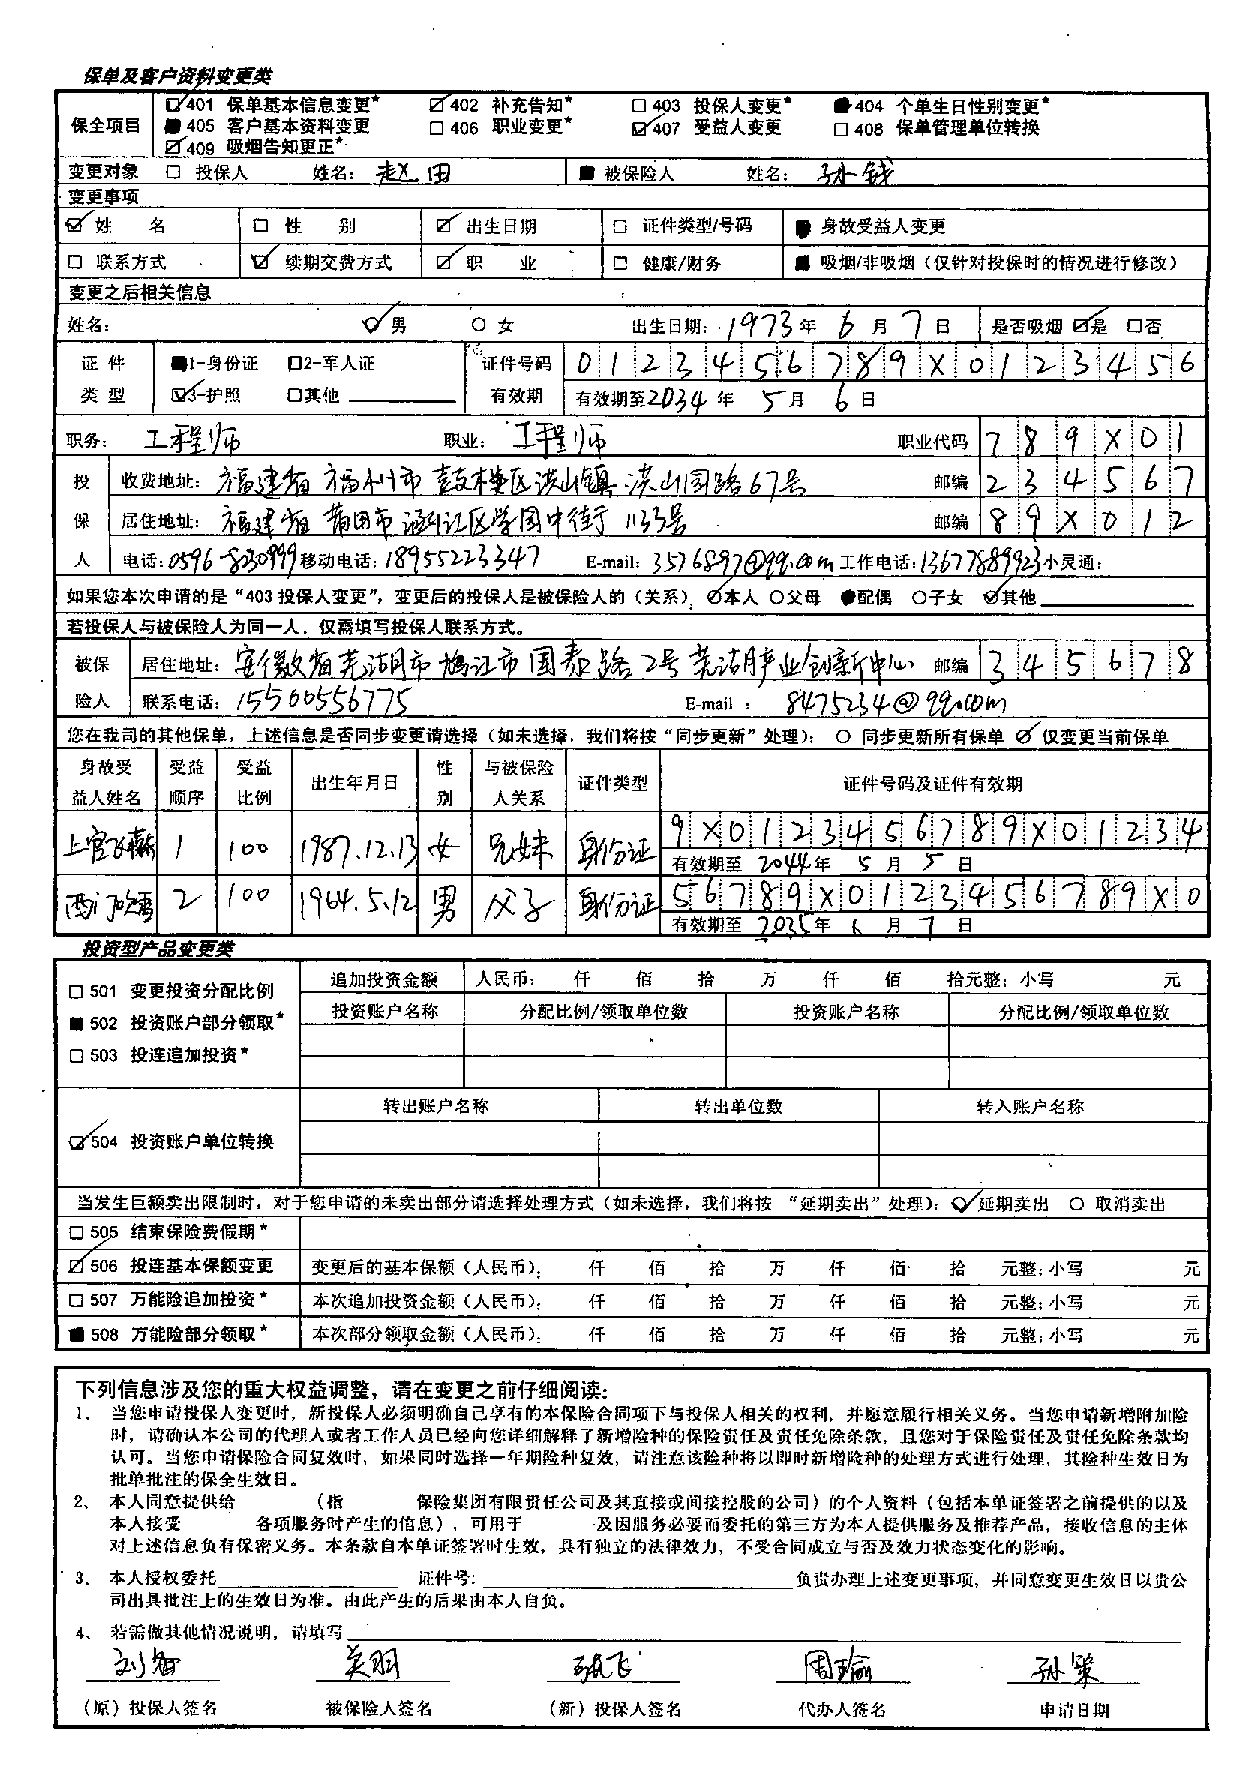 保单及客户资料变更类
保全项目 ☑401 保单基本信息变更* ☑402 补充告知* □403 投保人变更* ■404 个单生日性别变更*
■405 客户基本资料变更 □406 职业变更* ☑407 受益人变更 □408 保单管理单位转换
☑409 吸烟告知更正*
变更对象 □ 投保人 姓名: 赵田 ■ 被保险人 姓名: 孙钱
变更事项
☑ 姓 名 □ 性 别 ☑ 出生日期 □ 证件类型/号码 ■ 身故受益人变更
□ 联系方式 ☑ 续期交费方式 ☑ 职 业 □ 健康/财务 ■ 吸烟/非吸烟(仅针对投保时的情况进行修改)
变更之后相关信息
姓名: ☑ 男 ○ 女 出生日期: 1973 年 6 月 7 日 是否吸烟 ☑是 □否
证件类型 ■1-身份证 □2-军人证 证件号码 0 1 2 3 4 5 6 7 8 9 X 0 1 2 3 4 5 6
☑3-护照 □其他 有效期 有效期至2034 年 5 月 6 日
职务: 工程师 职业: 工程师 职业代码 7 8 9 X 0 1
投保人 收费地址: 福建省福州市鼓楼区洪山镇洪山园路67号 邮编 2 3 4 5 6 7
居住地址: 福建省莆田市涵江区学园中街1133号 邮编 8 9 X 0 1 2
电话:0596-8230999 移动电话:18955223347 E-mail: 3576897@qq.com 工作电话:13677889923 小灵通:
如果您本次申请的是“403投保人变更”,变更后的投保人是被保险人的(关系): ☑本人 ○父母 ●配偶 ○子女 ☑其他
若投保人与被保险人为同一人,仅需填写投保人联系方式。
被保险人 居住地址: 安徽省芜湖市鸠江市国泰路2号芜湖产业创新中心 邮编 3 4 5 6 7 8
联系电话: 15500556775 E-mail : 8475234@qq.com
您在我司的其他保单,上述信息是否同步变更请选择(如未选择,我们将按“同步更新”处理): ○ 同步更新所有保单 ☑ 仅变更当前保单
身故受益人姓名 受益顺序 受益比例 出生年月日 性别 与被保险人关系 证件类型 证件号码及证件有效期
上官飞燕 1 100 1987.12.13 女 兄妹 身份证 9 X 0 1 2 3 4 5 6 7 8 9 X 0 1 2 3 4
有效期至 2044 年 5 月 5 日
西门吹雪 2 100 1964.5.12 男 父子 身份证 5 6 7 8 9 X 0 1 2 3 4 5 6 7 8 9 X 0
有效期至 2035 年 6 月 7 日
投资型产品变更类
□ 501 变更投资分配比例 追加投资金额 人民币: 仟 佰 拾 万 仟 佰 拾元整: 小写 元
■ 502 投资账户部分领取* 投资账户名称 分配比例/领取单位数 投资账户名称 分配比例/领取单位数
□ 503 投连追加投资*
转出账户名称 转出单位数 转入账户名称
☑504 投资账户单位转换
当发生巨额卖出限制时,对于您申请的未卖出部分请选择处理方式(如未选择,我们将按 “延期卖出”处理): ☑延期卖出 ○ 取消卖出
□ 505 结束保险费假期*
☑506 投连基本保额变更 变更后的基本保额(人民币): 仟 佰 拾 万 仟 佰 拾 元整: 小写 元
□ 507 万能险追加投资* 本次追加投资金额(人民币): 仟 佰 拾 万 仟 佰 拾 元整: 小写 元
■ 508 万能险部分领取* 本次部分领取金额(人民币): 仟 佰 拾 万 仟 佰 拾 元整: 小写 元
下列信息涉及您的重大权益调整,请在变更之前仔细阅读:
1、 当您申请投保人变更时,新投保人必须明确自己享有的本保险合同项下与投保人相关的权利,并愿意履行相关义务。当您申请新增附加险
时,请确认本公司的代理人或者工作人员已经向您详细解释了新增险种的保险责任及责任免除条款,且您对于保险责任及责任免除条款均
认可。当您申请保险合同复效时,如果同时选择一年期险种复效,请注意该险种将以即时新增险种的处理方式进行处理,其险种生效日为
批单批注的保全生效日。
2、 本人同意提供给 (指 保险集团有限责任公司及其直接或间接控股的公司)的个人资料(包括本单证签署之前提供的以及
本人接受 各项服务时产生的信息),可用于 及因服务必要而委托的第三方为本人提供服务及推荐产品,接收信息的主体
对上述信息负有保密义务。本条款自本单证签署时生效,具有独立的法律效力,不受合同成立与否及效力状态变化的影响。
3、 本人授权委托 证件号: 负责办理上述变更事项,并同意变更生效日以贵公
司出具批注上的生效日为准。由此产生的后果由本人自负。
4、 若需做其他情况说明,请填写
刘智 关羽 张飞 周瑜 孙策
(原)投保人签名 被保险人签名 (新)投保人签名 代办人签名 申请日期